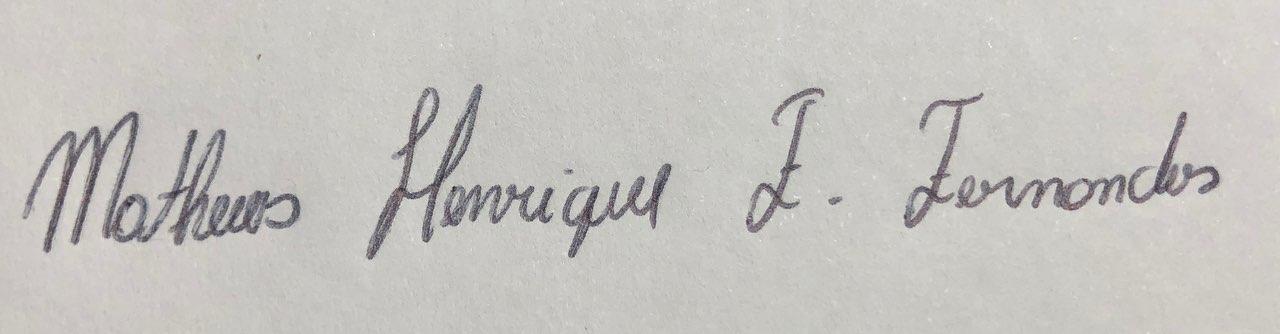 Matheus Henrique F. Fernandes